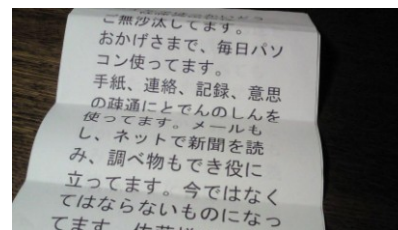 ご無沙汰してます。
おかげさまで、毎日パソ
コン使ってます。
手紙、連絡、記録、意思
の疎通にとでんのしんを
使ってます。メールも
し、ネットで新聞を読
み、調べ物もでき役に
立ってます。今ではなく
てはならないものになっ
てます。佐藤様